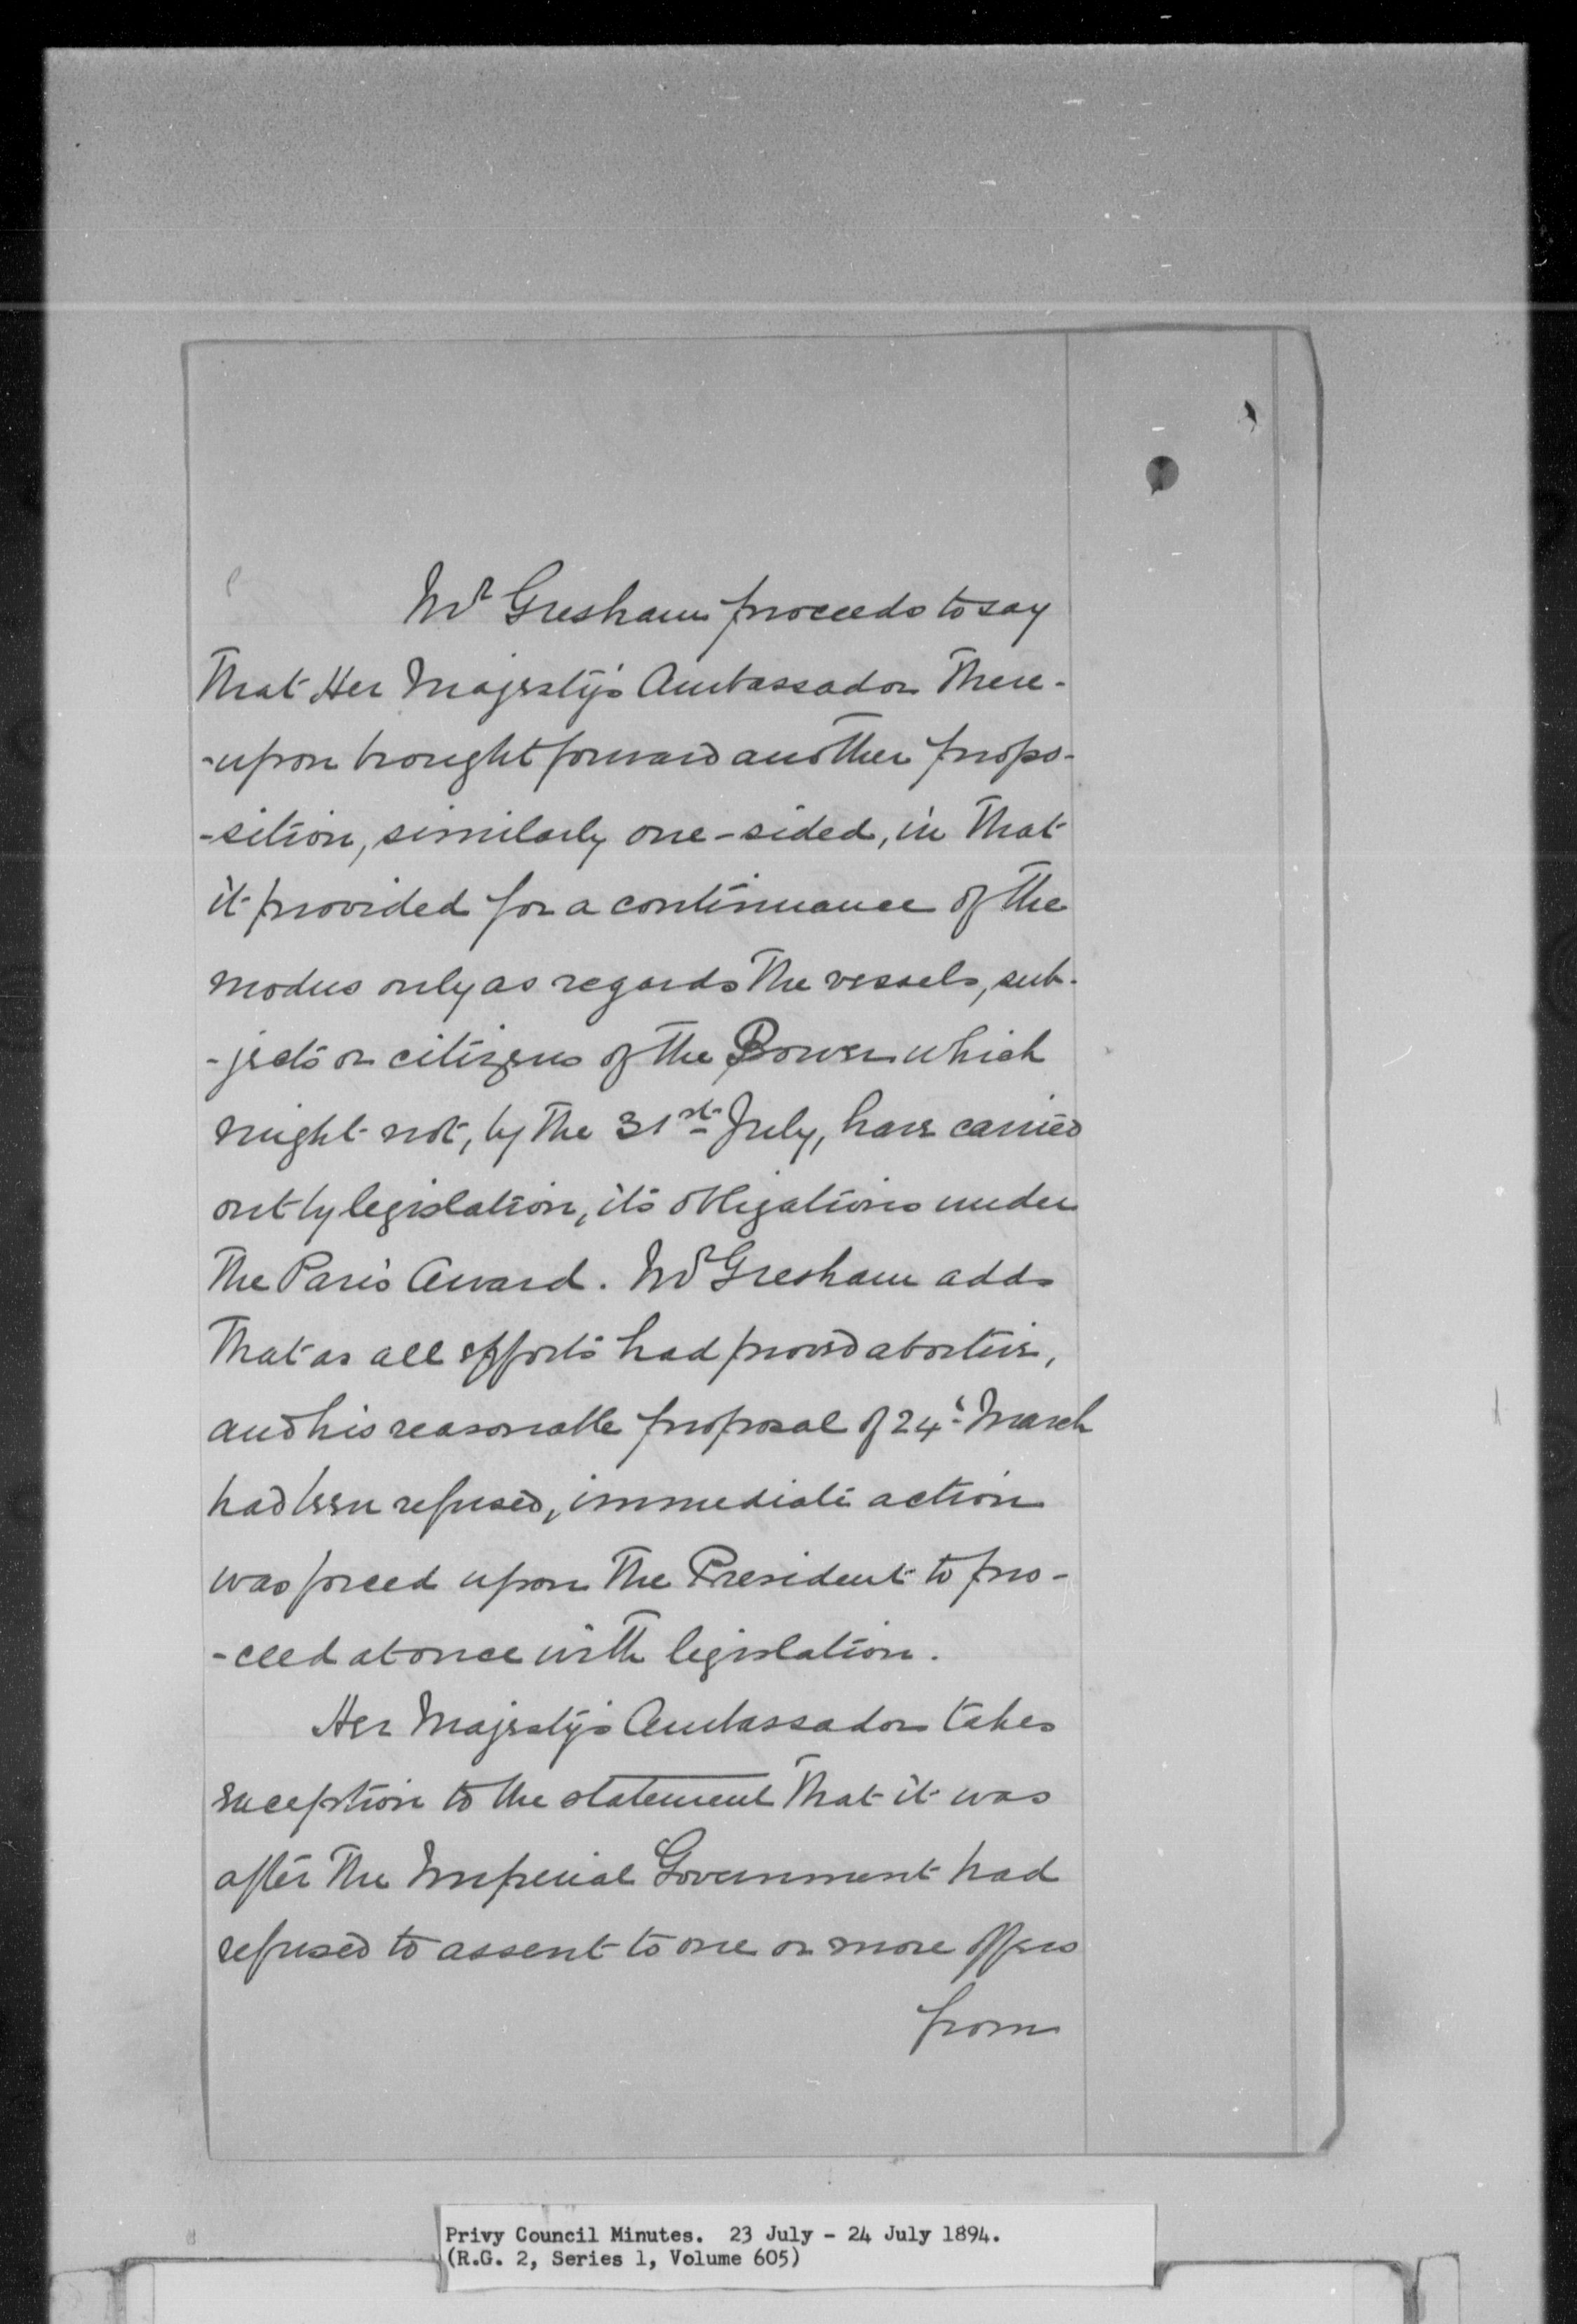 Mr Gresham proceeds to say
that Her Majesty's Ambassador there-
-upon brought forward another propo-
-sition, similarly one-sided, in that
it provided for a continuance of the
modus only as regards the vessels, sub-
-jects or citizens of the Power which
might not, by the 31st July, have carried
out by legislation, its obligations under
the Paris Award. Mr Gresham adds
that as all efforts had proved abortive,
and his reasonable proposal of 24th March
had been refused, immediate action
was forced upon the President to pro-
-ceed at once with legislation.
Her Majesty's Ambassador takes
exception to the statement that it was
after the Imperial Government had
refused to assent to one or more offers
from
Privy Council Minutes. 23 July - 24 July 1894.
(R.G. 2, Series 1, Volume 605)